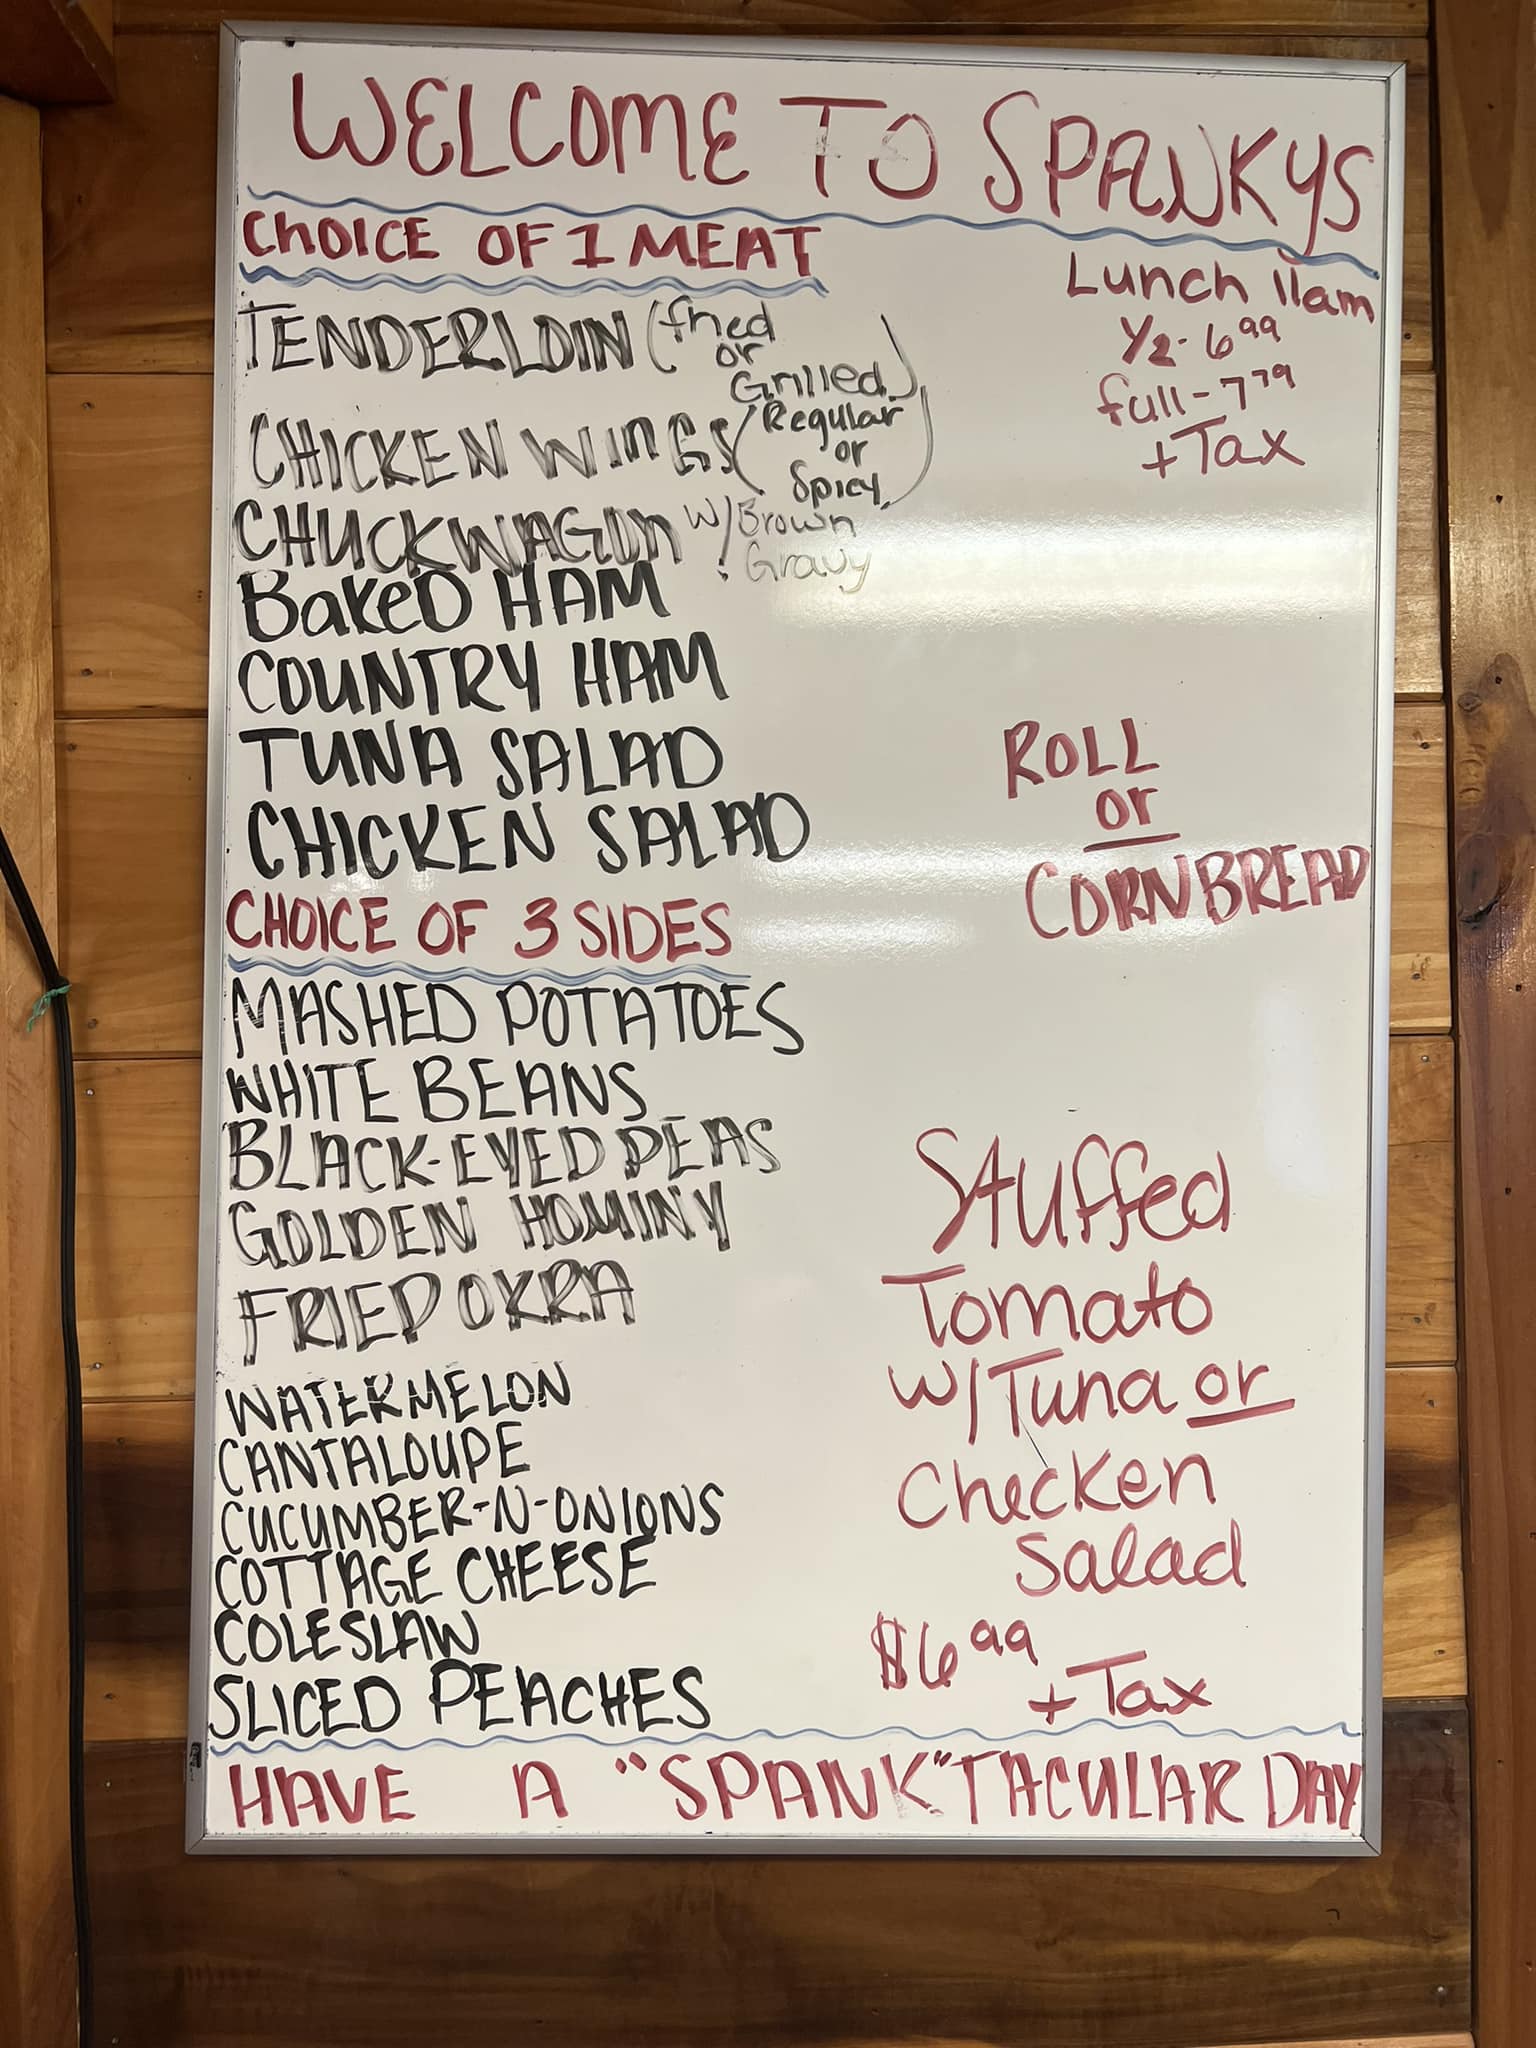 WELCOME TO SPANKYS
CHOICE OF 1 MEAT
Lunch 11am
1/2 - 6.99
full - 7.79
+ Tax
TENDERLOIN (fried or Grilled)
CHICKEN WINGS (Regular or Spicy)
CHUCKWAGON w/ Brown Gravy
BakeD HAM
COUNTRY HAM
TUNA SALAD
CHICKEN SALAD
ROLL
or
CORNBREAD
CHOICE OF 3 SIDES
MASHED POTATOES
WHITE BEANS
BLACK-EYED PEAS
GOLDEN HOMINY
FRIED OKRA
WATERMELON
CANTALOUPE
CUCUMBER-N-ONIONS
COTTAGE CHEESE
COLESLAW
SLICED PEACHES
Stuffed
Tomato
w/Tuna or
Chicken
Salad
$6.99
+ Tax
HAVE A "SPANK"TACULAR DAY